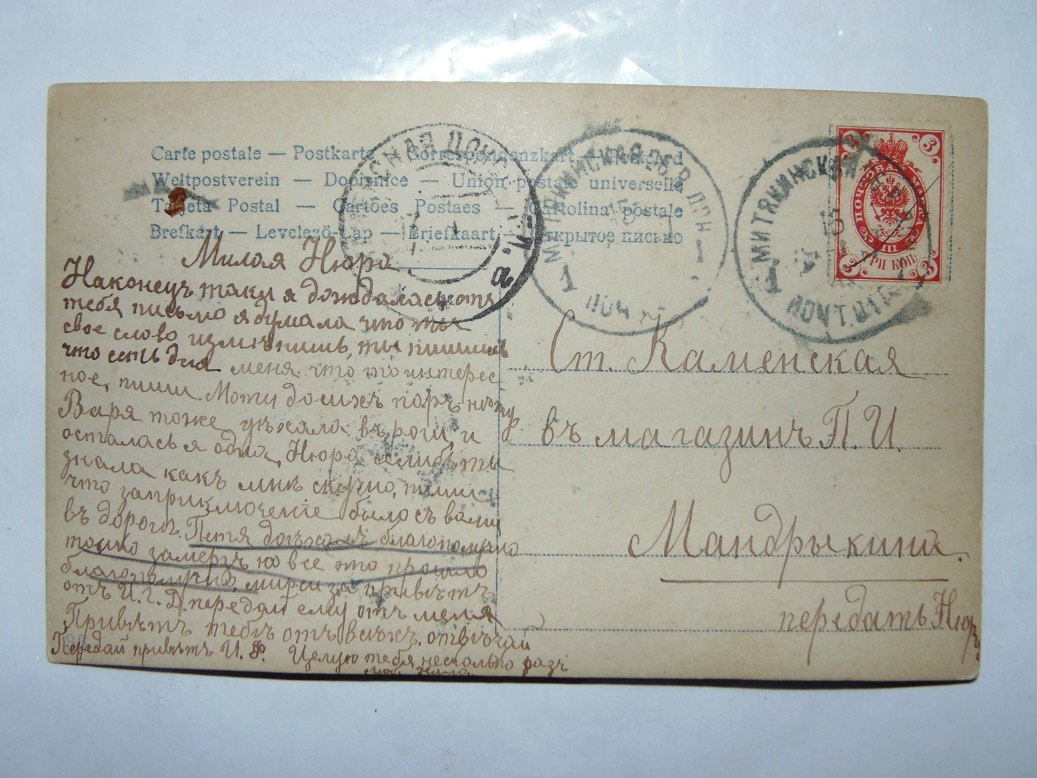 Carte postale — Postkarte — Correspondenzkart
Weltpostverein — Dopisnice — Union postale universelle
Tarjeta Postal — Cartões Postaes — Cartolina postale
Brefkart — Levelező-Lap — Briefkaart Открытое письмо
МИТЯКИНСКАЯ ОБ. В. ДОН
1
МИТЯКИНСКАЯ
ПОЧТ. ОТД.
1
3 3
ТРИ КОП.
3 3
Милая Нюра
Наконецъ таки я дождалась отъ
тебя письмо я думала что ты
свое слово измѣнишь, ты пишишь
что есть для меня что то интерес
ное, пиши.
Варя тоже уѣхала въ и
осталась я одна, Нюра еслибъ ты
знала какъ мнѣ скучно, пиши
что за приключенiе было съ вами
въ дороги. Петя доѣхалъ благополучно
только замерзъ но все это прошло
благополучно, мирси за привѣтъ
отъ И. Г. Д. передай ему отъ меня
Привѣтъ тебѣ отъ всѣхъ. отвѣчай
Передай привѣтъ И. Ф. Целую тебя несколько разъ
Ст. Каменская
въ магазинъ П. И.
Мандрыкина.
передать Нюрѣ